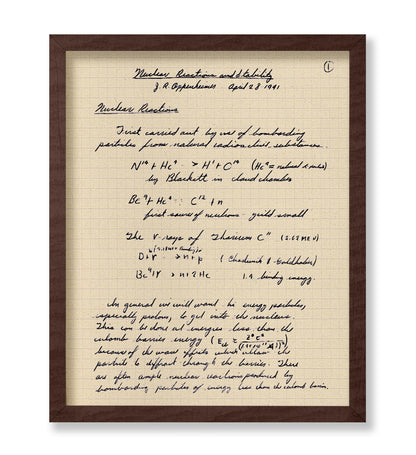 ①
Nuclear Reactions and Stability
J. R. Oppenheimer April 28 1941
Nuclear Reactions
First carried out by use of bombarding
particles from natural radioactive substances.
N¹⁴ + He⁴ -> H¹ + O¹⁷ (He⁴ = natural α rules)
by Blackett in cloud chamber
Be⁹ + He⁴ : C¹² + n
first source of neutrons - yield small
The γ rays of Thorium C" (2.62 MeV)
D + γ -> n + p (Chadwick & Goldhaber)
Be⁹ + γ -> n + 2 He 1.9 binding energy.
In general we will want hi energy particles,
especially protons, to get into the nucleus.
This can be done at energies less than the
coulomb barrier energy
because of the wave effects which allow the
particle to diffract through the barrier. There
are often ample nuclear reactions produced by
bombarding particles of energy less than the coulomb barrier.